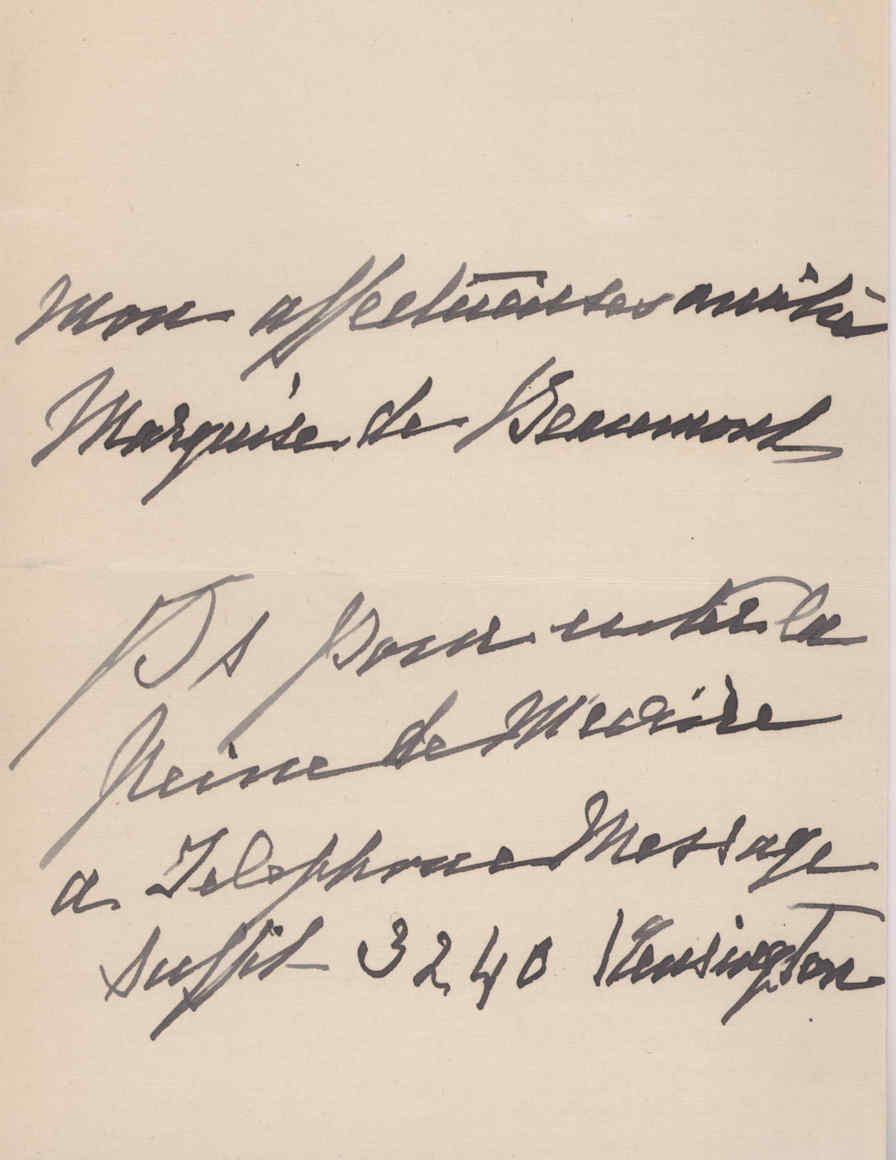 mon affectueuse amitié
Marquise de Beaumont
Ps Pour la
Reine de
a Telephone Message
suffit 3240 Kensington